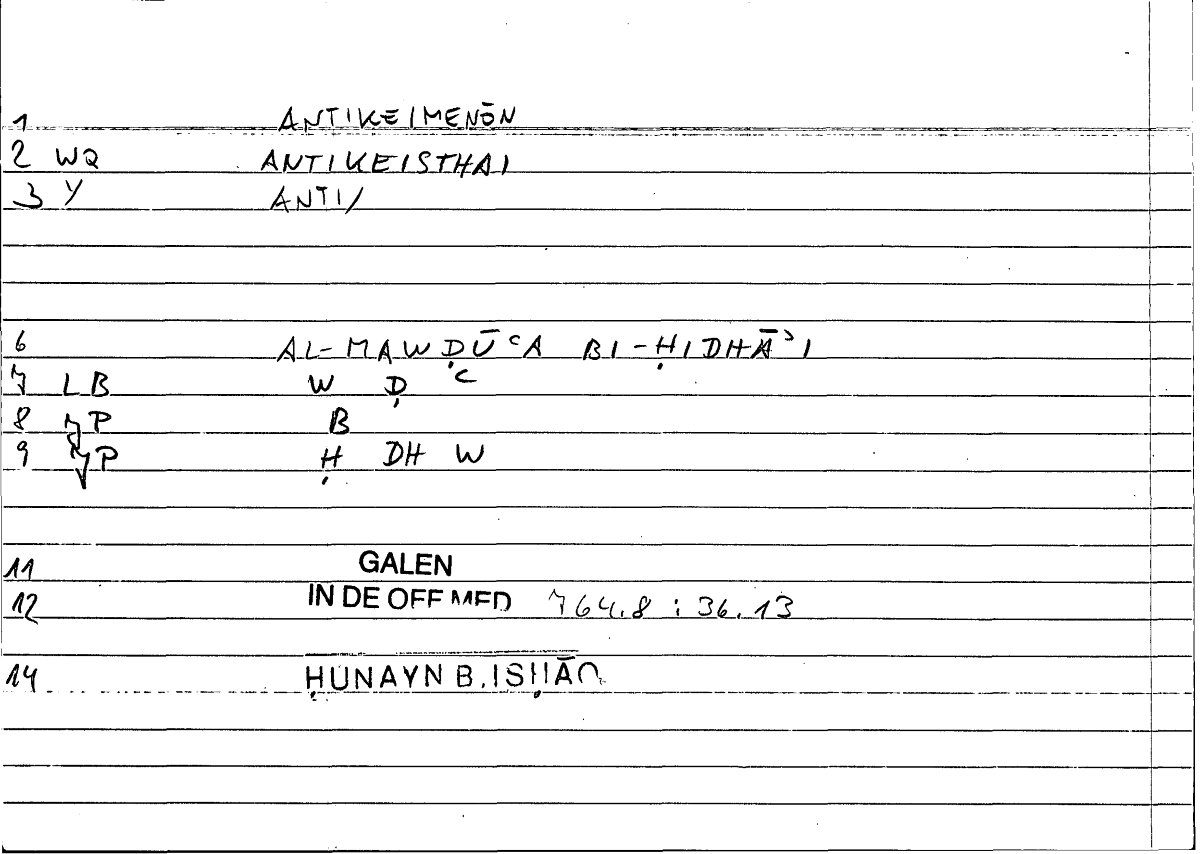 1 ANTIKEIMENŌN
2 WQ ANTIKEISTHAI
3 Y ANTI/
6 AL-MAWḌŪʿA BI-ḤIDHĀʾI
7 LB W Ḍ ʿ
8 P B
9 P Ḥ DH W
11 GALEN
12 IN DE OFF MED 764.8 : 36.13
14 ḤUNAYN B. ISḤĀQ